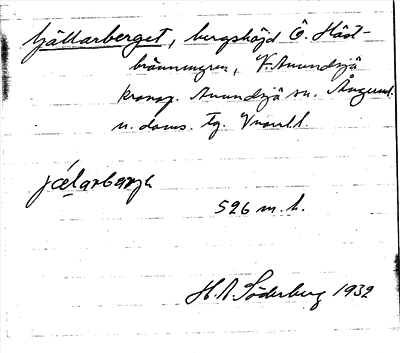 Gjällarberget, bergshöjd Ö. Häst-
bränningen, V. Anundsjö
kronop. Anundsjö sn. Ångerml.
n. doms. tg.
526 m. h.
H. A. Söderberg 1932